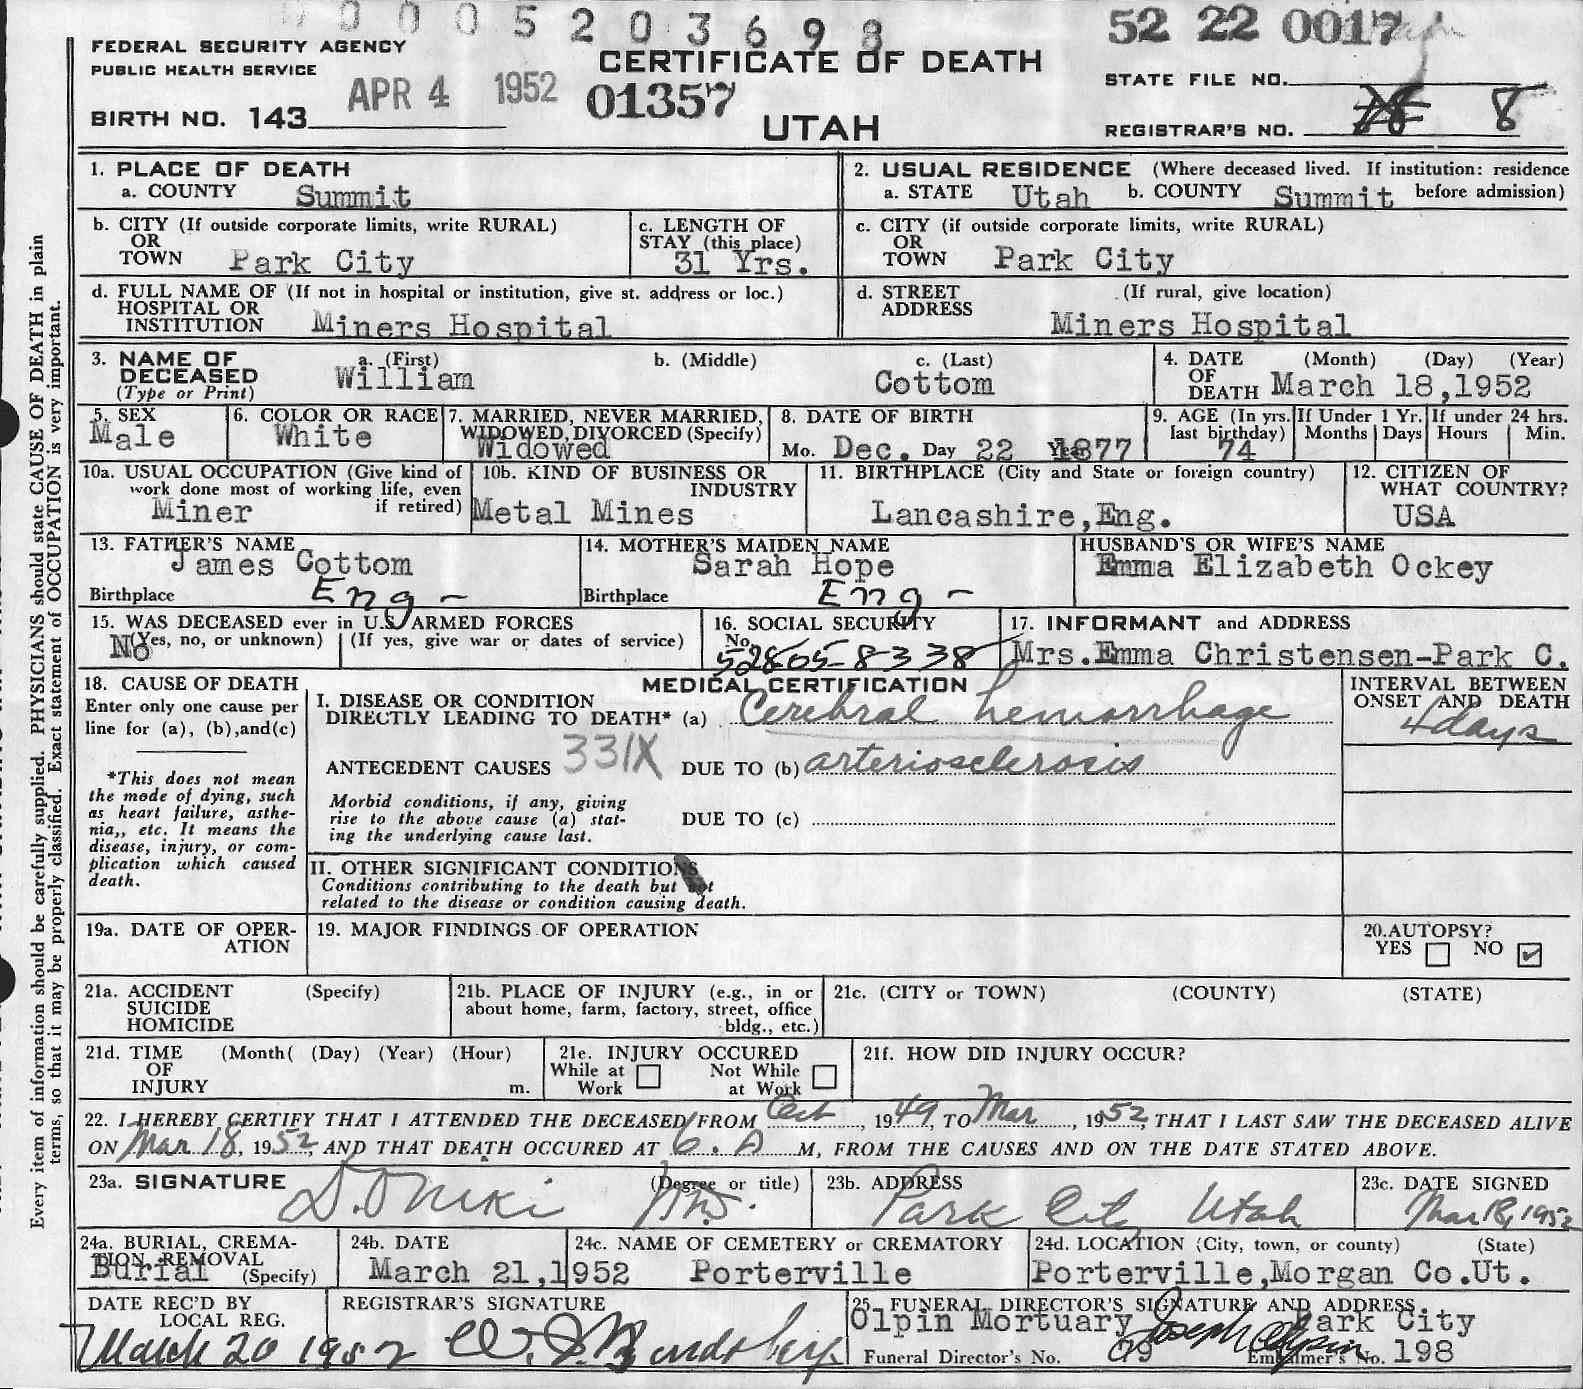 0 0 0 5 2 0 3 6 9 8
52 22 0017
FEDERAL SECURITY AGENCY
PUBLIC HEALTH SERVICE
CERTIFICATE OF DEATH
STATE FILE NO.
APR 4 1952
01357
BIRTH NO. 143
UTAH
REGISTRAR'S NO. 8
1. PLACE OF DEATH
a. COUNTY Summit
2. USUAL RESIDENCE (Where deceased lived. If institution: residence
a. STATE Utah b. COUNTY Summit before admission)
b. CITY (If outside corporate limits, write RURAL)
OR
TOWN Park City
c. LENGTH OF
STAY (this place)
31 Yrs.
c. CITY (if outside corporate limits, write RURAL)
OR
TOWN Park City
d. FULL NAME OF (If not in hospital or institution, give st. address or loc.)
HOSPITAL OR
INSTITUTION Miners Hospital
d. STREET (If rural, give location)
ADDRESS
Miners Hospital
3. NAME OF DECEASED (Type or Print)
a. (First) b. (Middle) c. (Last)
William Cottom
4. DATE (Month) (Day) (Year)
OF
DEATH March 18,1952
5. SEX
Male
6. COLOR OR RACE
White
7. MARRIED, NEVER MARRIED,
WIDOWED, DIVORCED (Specify)
Widowed
8. DATE OF BIRTH
Mo. Dec. Day 22 Year 1877
9. AGE (In yrs. last birthday)
74
If Under 1 Yr.
Months Days
If under 24 hrs.
Hours Min.
10a. USUAL OCCUPATION (Give kind of
work done most of working life, even
if retired)
Miner
10b. KIND OF BUSINESS OR
INDUSTRY
Metal Mines
11. BIRTHPLACE (City and State or foreign country)
Lancashire,Eng.
12. CITIZEN OF
WHAT COUNTRY?
USA
13. FATHER'S NAME
James Cottom
Birthplace Eng -
14. MOTHER'S MAIDEN NAME
Sarah Hope
Birthplace Eng -
HUSBAND'S OR WIFE'S NAME
Emma Elizabeth Ockey
15. WAS DECEASED ever in U.S. ARMED FORCES
(Yes, no, or unknown) (If yes, give war or dates of service)
No
16. SOCIAL SECURITY
No.
528-05-8338
17. INFORMANT and ADDRESS
Mrs.Emma Christensen-Park C.
18. CAUSE OF DEATH
Enter only one cause per
line for (a), (b),and(c)
*This does not mean
the mode of dying, such
as heart failure, asthe-
nia,, etc. It means the
disease, injury, or com-
plication which caused
death.
MEDICAL CERTIFICATION
I. DISEASE OR CONDITION
DIRECTLY LEADING TO DEATH* (a) Cerebral hemorrhage
ANTECEDENT CAUSES 331X DUE TO (b) arteriosclerosis
Morbid conditions, if any, giving
rise to the above cause (a) stat-
ing the underlying cause last.
DUE TO (c)
II. OTHER SIGNIFICANT CONDITIONS
Conditions contributing to the death but not
related to the disease or condition causing death.
INTERVAL BETWEEN
ONSET AND DEATH
4 days
19a. DATE OF OPER-
ATION
19. MAJOR FINDINGS OF OPERATION
20.AUTOPSY?
YES NO ✓
21a. ACCIDENT (Specify)
SUICIDE
HOMICIDE
21b. PLACE OF INJURY (e.g., in or
about home, farm, factory, street, office
bldg., etc.)
21c. (CITY or TOWN) (COUNTY) (STATE)
21d. TIME (Month( (Day) (Year) (Hour)
OF
INJURY m.
21e. INJURY OCCURED
While at Work Not While at Work
21f. HOW DID INJURY OCCUR?
22. I HEREBY CERTIFY THAT I ATTENDED THE DECEASED FROM Oct, 1949, TO Mar, 1952, THAT I LAST SAW THE DECEASED ALIVE
ON Mar 18, 1952, AND THAT DEATH OCCURED AT 6. A M, FROM THE CAUSES AND ON THE DATE STATED ABOVE.
23a. SIGNATURE (Degree or title)
M.D.
23b. ADDRESS
Park City Utah
23c. DATE SIGNED
Mar 18, 1952
24a. BURIAL, CREMA-
TION REMOVAL
(Specify)
Burial
24b. DATE
March 21,1952
24c. NAME OF CEMETERY or CREMATORY
Porterville
24d. LOCATION (City, town, or county) (State)
Porterville,Morgan Co.Ut.
DATE REC'D BY
LOCAL REG.
March 20 1952
REGISTRAR'S SIGNATURE
25. FUNERAL DIRECTOR'S SIGNATURE AND ADDRESS.
Olpin Mortuary Park City
Joseph Olpin
Funeral Director's No. Embalmer's No. 198
Every item of information should be carefully supplied. PHYSICIANS should state CAUSE OF DEATH in plain
terms, so that it may be properly classified. Exact statement of OCCUPATION is very important.